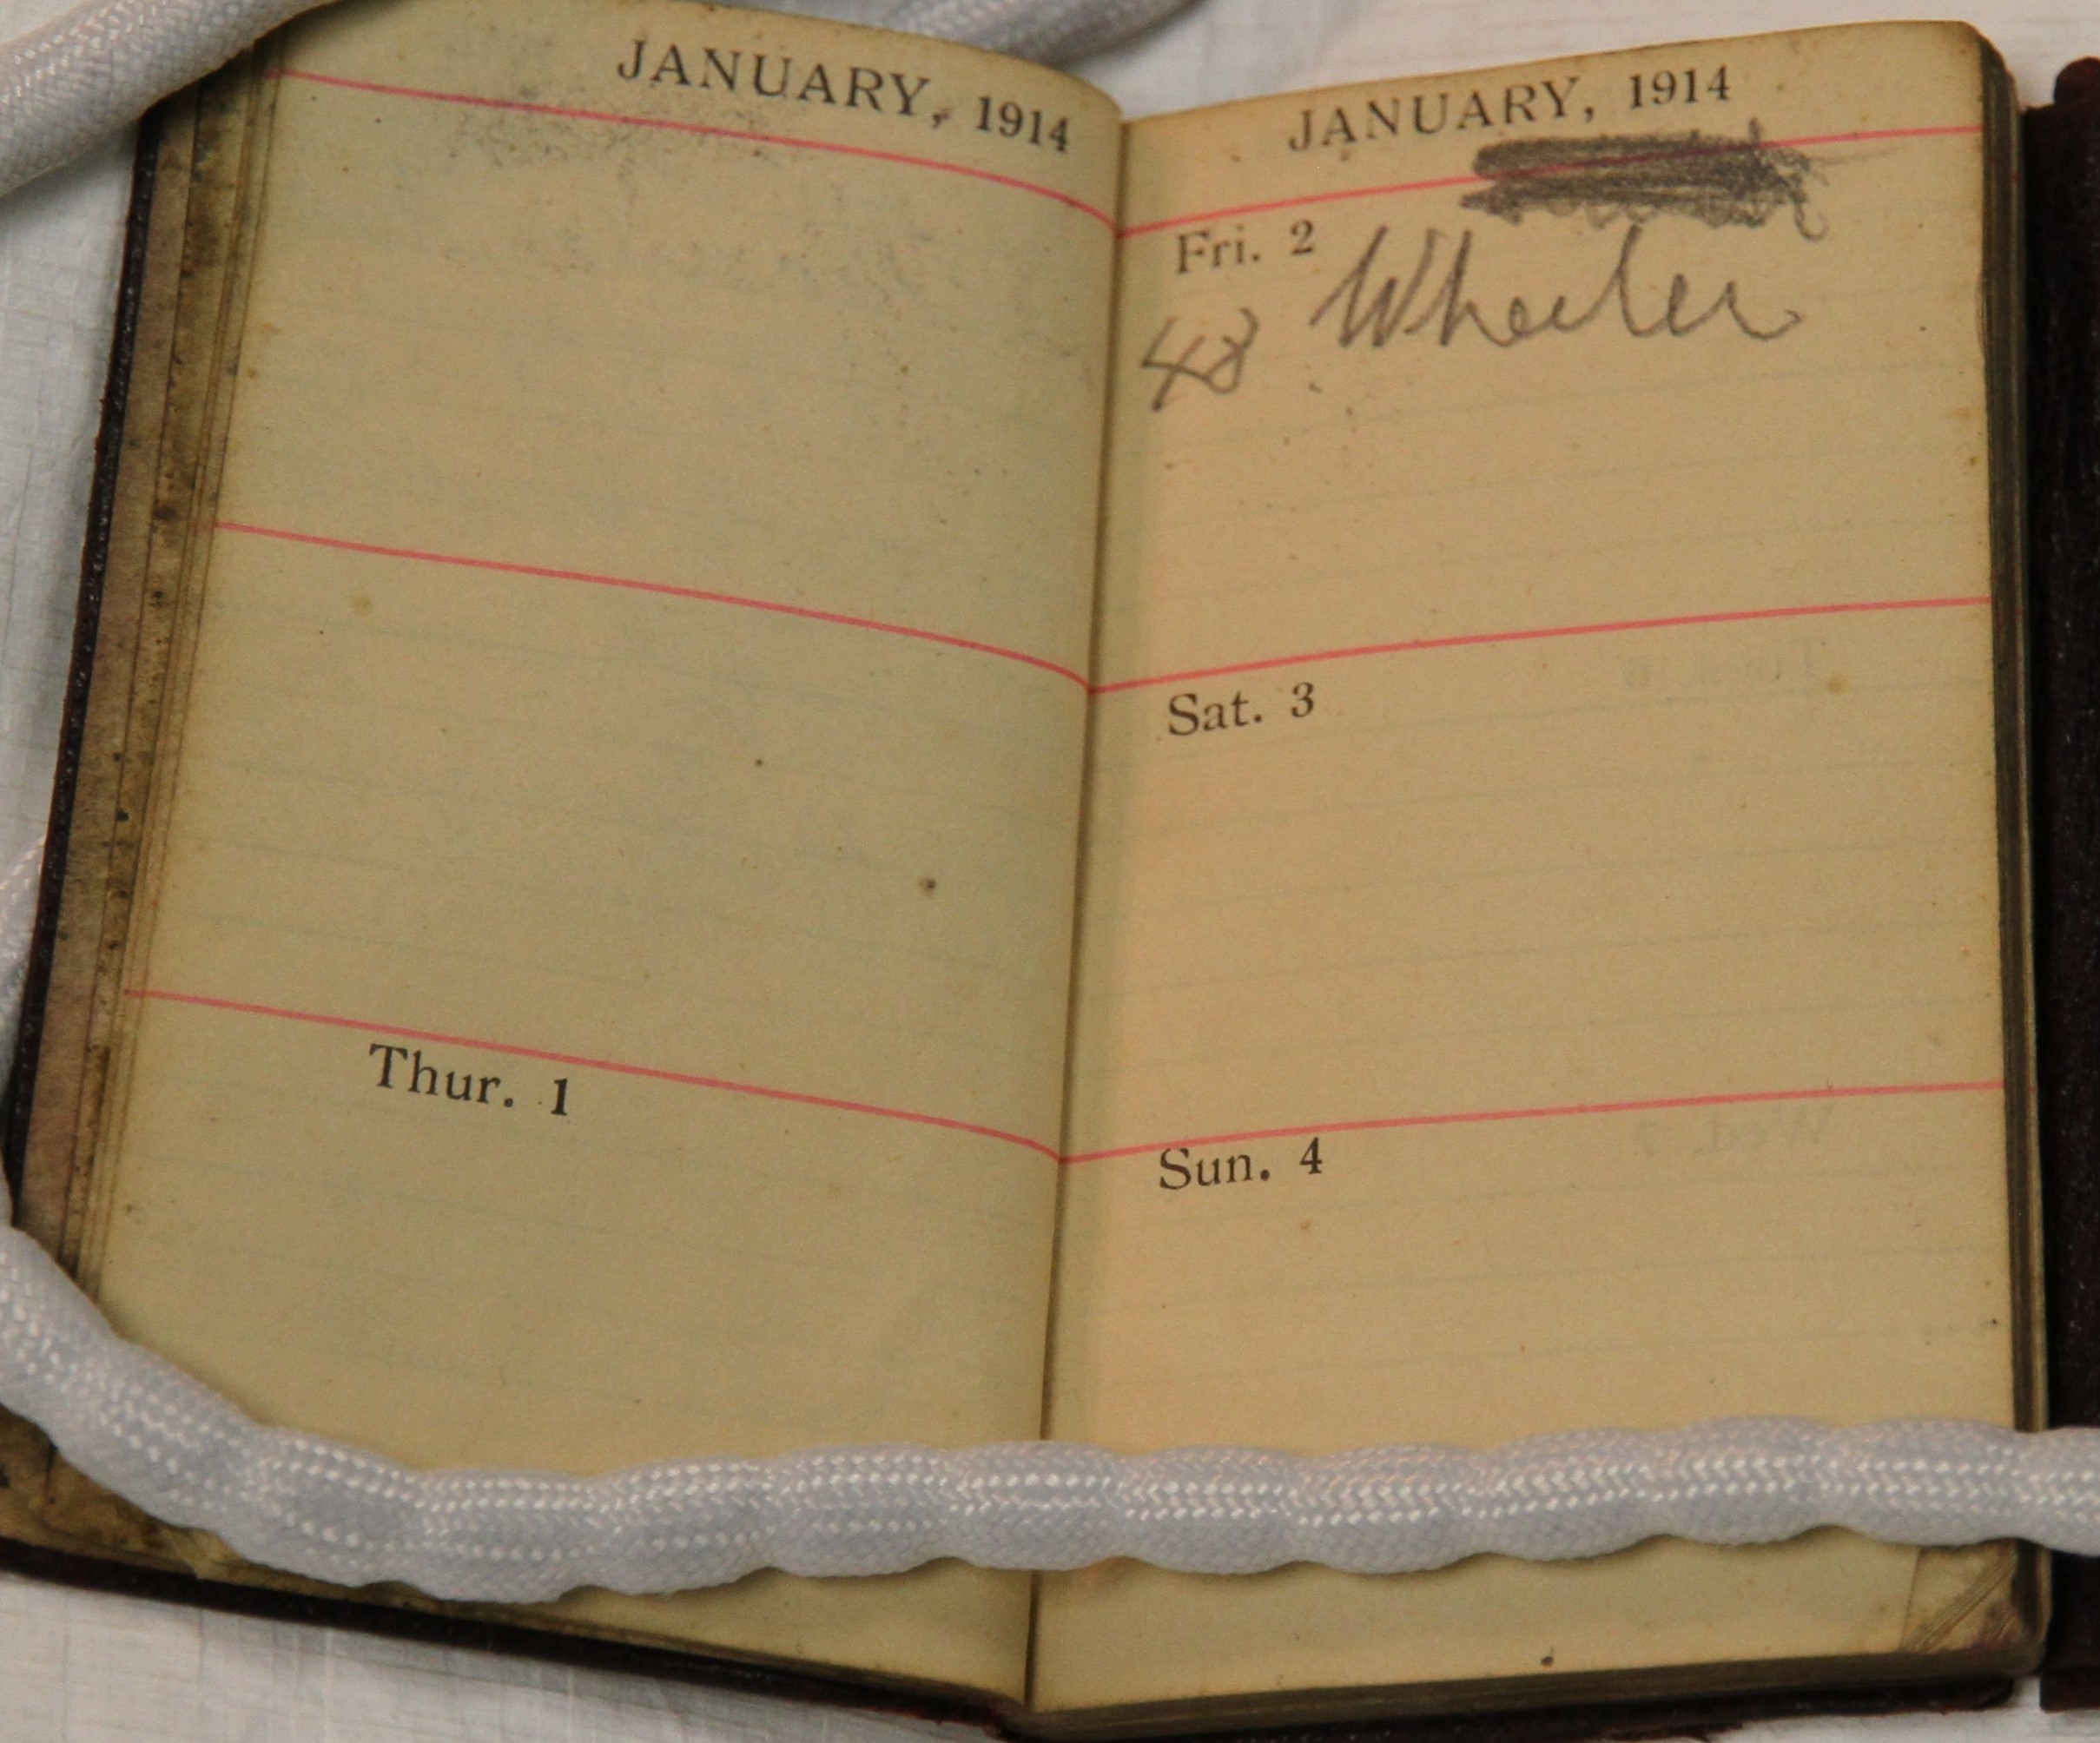 JANUARY, 1914
Thur. 1
JANUARY, 1914
Fri. 2
Wheeler
48
Sat. 3
Sun. 4